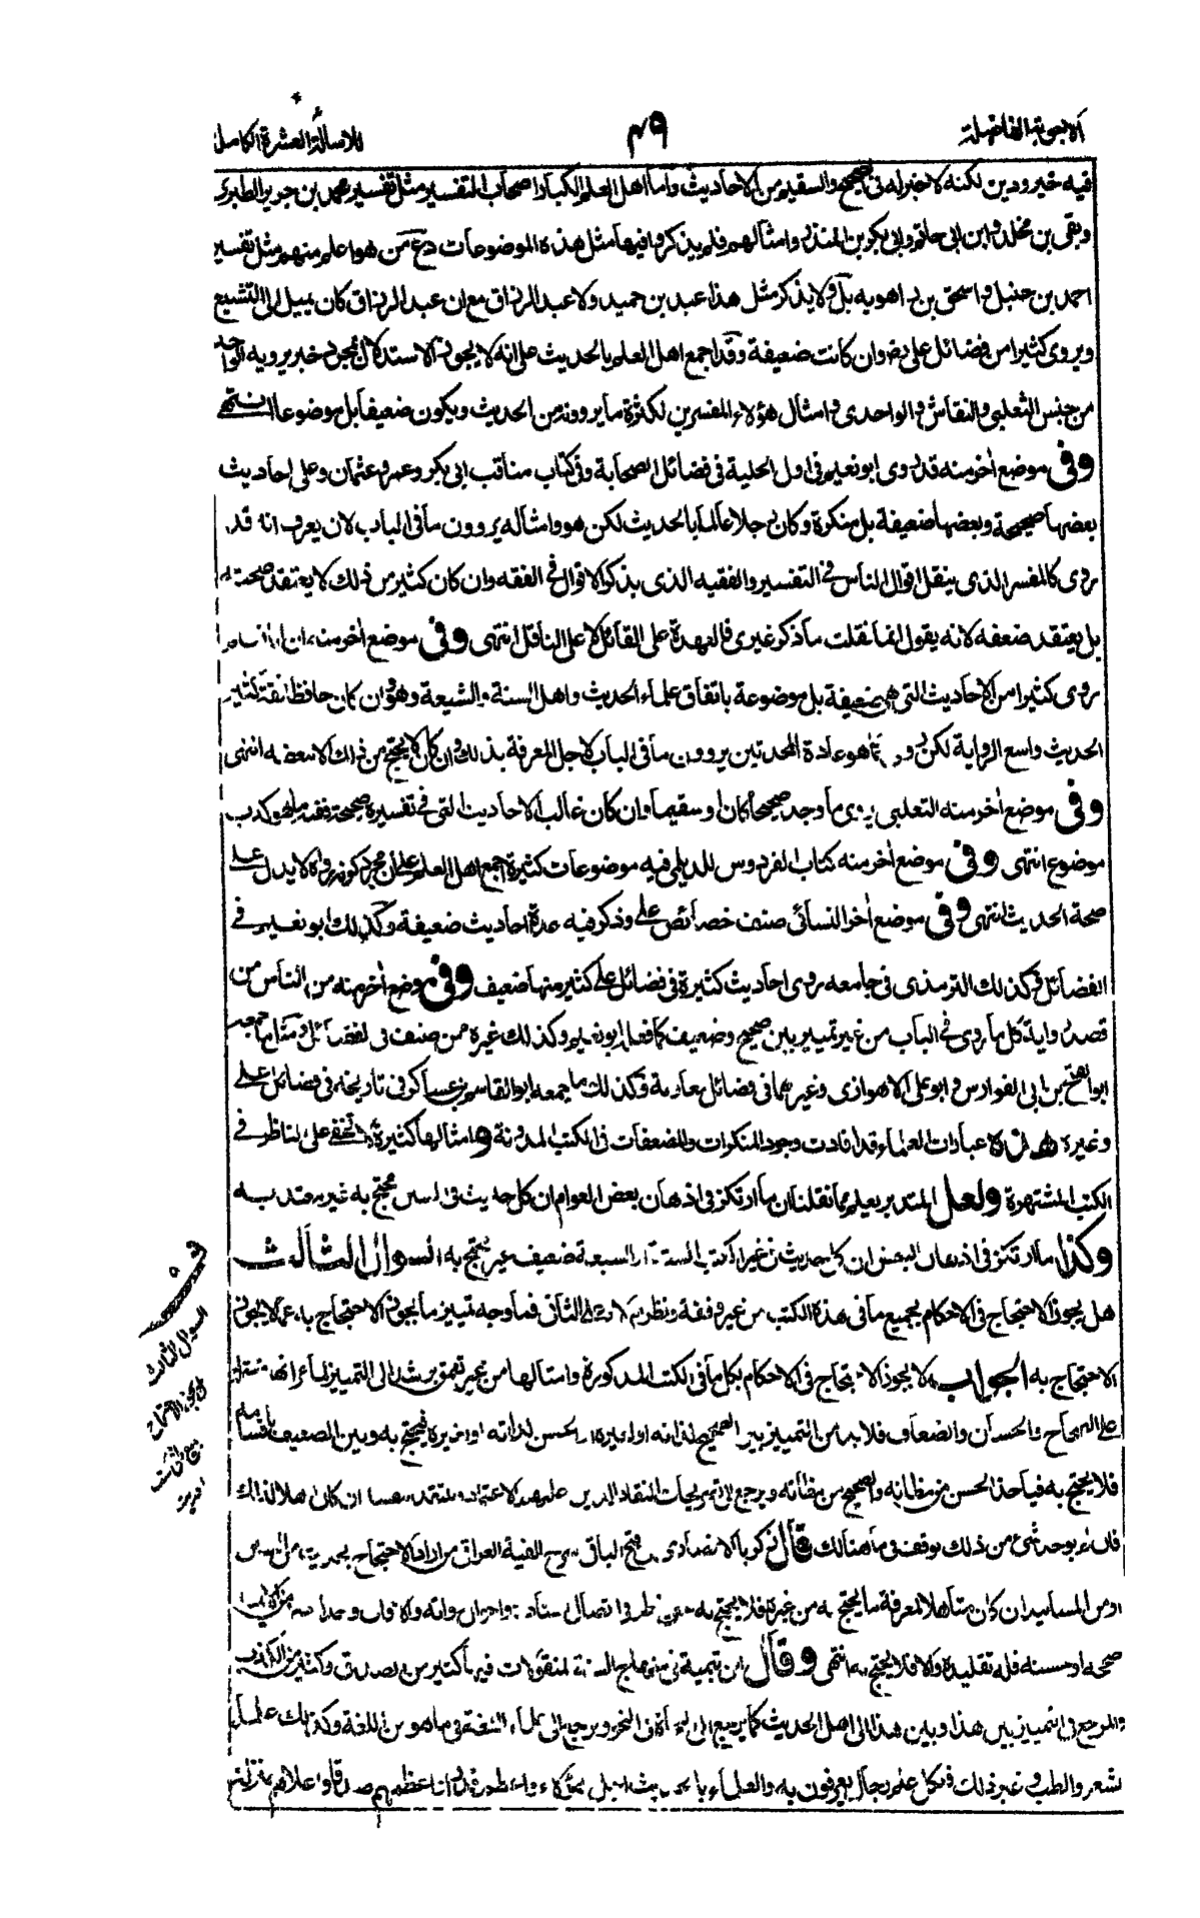 الاجوبة الفاضلة
٤٩
للاسئلة العشرة الكاملة
فيه خير ودين لكنه لا خبرة له في الصحيح والسقيم من الاحاديث واما اهل العلم الكبار اصحاب التفسير مثل تفسير محمد بن جرير الطبرى
وبقى بن مخلد وابن ابى حاتم وابى بكر بن المنذر وامثالهم فلم يذكر فيها مثل هذه الموضوعات دع من هو اعلم منهم مثل تفسير
احمد بن حنبل واسحق بن راهويه بل ولا يذكر مثل هذا عبد بن حميد ولا عبد الرزاق مع ان عبد الرزاق كان يميل الى التشيع
ويروى كثيرا من فضائل على رض وان كانت ضعيفة وقد اجمع اهل العلم بالحديث على انه لا يجوز الاستدلال بمجرد خبر يرويه الواحد
من جنس الثعلبى والنقاش والواحدى وامثال هؤلاء المفسرين لكثرة ما يروونه من الحديث ويكون ضعيفا بل موضوعا انتهى
وفى موضع اخر منه قد روى ابو نعيم فى اول الحلية فى فضائل الصحابة وفى كتاب مناقب ابى بكر وعمر وعثمان وعلى احاديث
بعضها صحيحة وبعضها ضعيفة بل منكرة وكان رجلا عالما بالحديث لكن هو وامثاله يروون ما فى الباب لان يعرف انه قد
روى كالمفسر الذى ينقل اقوال الناس فى التفسير والفقيه الذى يذكر الاقوال فى الفقه وان كان كثير من ذلك لا يعتقد صحته
بل يعتقد ضعفه لانه يقول انما نقلت ما ذكر غيرى فالعهدة على القائل لا على الناقل انتهى وفى موضع اخر منه ان ابا نعيم
روى كثيرا من الاحاديث التى هى ضعيفة بل موضوعة باتفاق علماء الحديث واهل السنة والشيعة وهو وان كان حافظا ثقة كثير
الحديث واسع الرواية لكن روى كما هو عادة المحدثين يروون ما فى الباب لاجل المعرفة بذلك وان كان لا يحتج من ذلك الا ببعضه انتهى
وفى موضع اخر منه الثعلبى يروى ما وجد صحيحا كان او سقيما وان كان غالب الاحاديث التى فى تفسيره صحيحة ففيه ما هو كذب
موضوع انتهى وفى موضع اخر منه كتاب الفردوس للديلمى فيه موضوعات كثيرة اجمع اهل العلم على ان مجرد كونه رواه لا يدل على
صحة الحديث انتهى وفى موضع اخر النسائى صنف خصائص على وذكر فيه عدة احاديث ضعيفة وكذلك ابو نعيم فى
الفضائل وكذلك الترمذى فى جامعه روى احاديث كثيرة فى فضائل على كثير منها ضعيف وفى موضع اخر منه من الناس من
قصد رواية كل ما روى فى الباب من غير تمييز بين صحيح وضعيف كما فعله ابو نعيم وكذلك غيره ممن صنف فى الفضائل ومثل ما جمعه
ابو الفتح بن ابى الفوارس وابو على الاهوازى وغيرهما فى فضائل معاوية وكذلك ما جمعه ابو القاسم بن عساكر فى تاريخه فى فضائل على
وغيره هذه عبارات العلماء قد افادت وجود المنكرات والضعفات فى الكتب المدونة وامثالها كثيرة لا تخفى على الناظر فى
الكتب المشتهرة ولعل المتدبر يعلم مما نقلنا ان ما ارتكز فى اذهان بعض العوام ان كل حديث فى السنن محتج به غير معتد به
وكذا ما ارتكز فى اذهان البعض ان كل حديث فى غير الكتب الستة او السبعة ضعيف غير محتج به السوال الثالث
هل يجوز الاحتجاج فى الاحكام بجميع ما فى هذه الكتب من غير وقفة ونظر ام لا وعلى الثانى فما وجه تمييز ما يجوز الاحتجاج به عما لا يجوز
الاحتجاج به الجواب لا يجوز الاحتجاج فى الاحكام بكل ما فى الكتب المذكورة وامثالها من غير تعمق يرشد الى التمييز لما مر انها مشتملة
على الصحاح والحسان والضعاف فلا بد من التمييز بين الصحيح لذاته او لغيره او الحسن لذاته او لغيره فيحتج به وبين الضعيف باقسامه
فلا يحتج به فياخذ الحسن من مظانه والصحيح من مظانه ويرجع الى تصريحات النقاد الذين عليهم الاعتماد وينتقد بنفسه ان كان اهلا لذلك
فان لم يوجد شئ من ذلك توقف فى ما هنالك قال زكريا الانصارى فى فتح الباقى شرح الفية العراقى من اراد الاحتجاج بحديث من السنن
او من المسانيد ان كان متأهلا لمعرفة ما يحتج به من غيره فلا يحتج به حتى ينظر فى اتصال اسناده واحوال رواته والا فان وجد احدا من الائمة
صححه او حسنه فله تقليده والا فلا يحتج به انتهى وقال ابن تيمية فى منهاج السنة المنقولات فيها كثير من الصدق وكثير من الكذب
والمرجع فى التمييز بين هذا وبين هذا الى اهل الحديث كما يرجع الى النحاة فى النحو ويرجع الى علماء اللغة فى ما هو من اللغة وكذلك علماء
الشعر والطب وغير ذلك فلكل علم رجال يعرفون به والعلماء بالحديث اجل هؤلاء واعظم قدرا اعظمهم صدقا واعلاهم منزلة
السوال الثالث